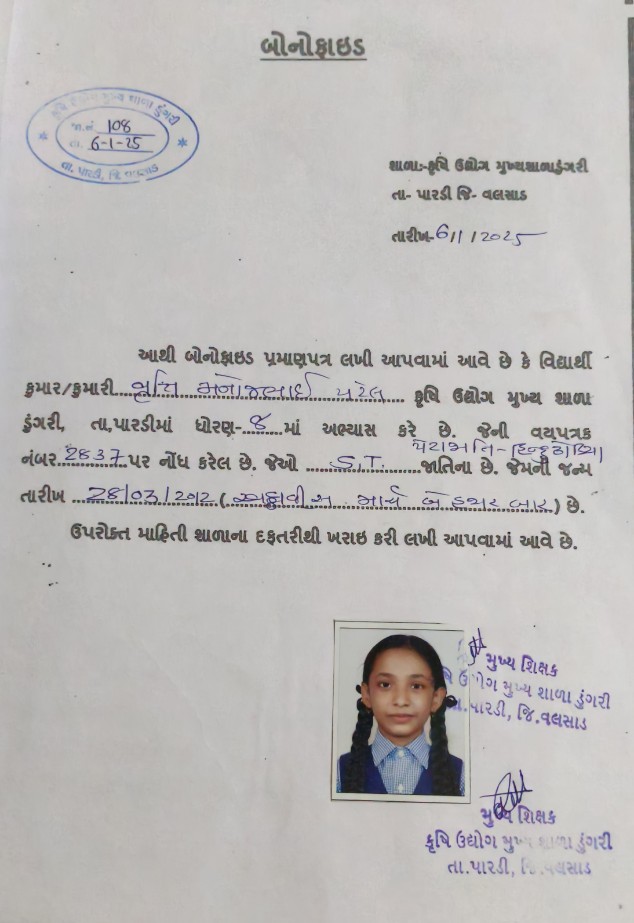 બોનોફાઇડ
કૃષિ ઉદ્યોગ મુખ્ય શાળા ડુંગરી
જા.નં. 108
તા. 6-1-25
તા. પારડી, જિ. વલસાડ
શાળા:-કૃષિ ઉદ્યોગ મુખ્યશાળાડુંગરી
તા- પારડી જિ- વલસાડ
તારીખ-6/1/2025
આથી બોનોફાઇડ પ્રમાણપત્ર લખી આપવામાં આવે છે કે વિદ્યાર્થી
કુમાર/કુમારી... મનોજભાઈ પટેલ... કૃષિ ઉદ્યોગ મુખ્ય શાળા
ડુંગરી, તા.પારડીમાં ધોરણ-..૮..માં અભ્યાસ કરે છે. જેની વયપત્રક
પેટાજાતિ-હિન્દુ ધોડિયા
નંબર..2837..પર નોંધ કરેલ છે. જેઓ ....S.T.... જાતિના છે. જેમની જન્મ
તારીખ ..28/03/2012 (અઠ્ઠાવીસ માર્ચ બે હજાર બાર) છે.
ઉપરોક્ત માહિતી શાળાના દફતરીથી ખરાઇ કરી લખી આપવામાં આવે છે.
મુખ્ય શિક્ષક
કૃષિ ઉદ્યોગ મુખ્ય શાળા ડુંગરી
તા.પારડી, જિ.વલસાડ
મુખ્ય શિક્ષક
કૃષિ ઉદ્યોગ મુખ્ય શાળા ડુંગરી
તા.પારડી, જિ.વલસાડ